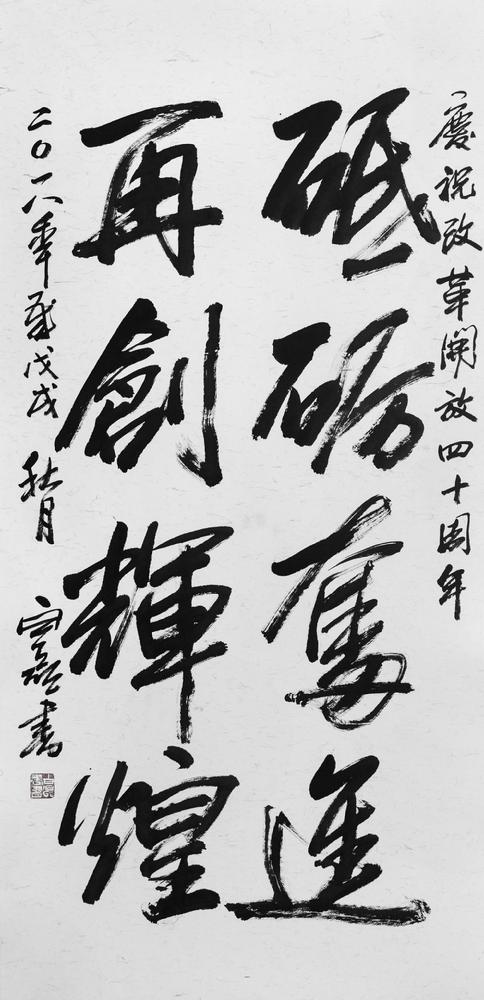 慶祝改革開放四十周年
砥礪奮進
再創輝煌
二〇一八年歲戊戌 秋月
書